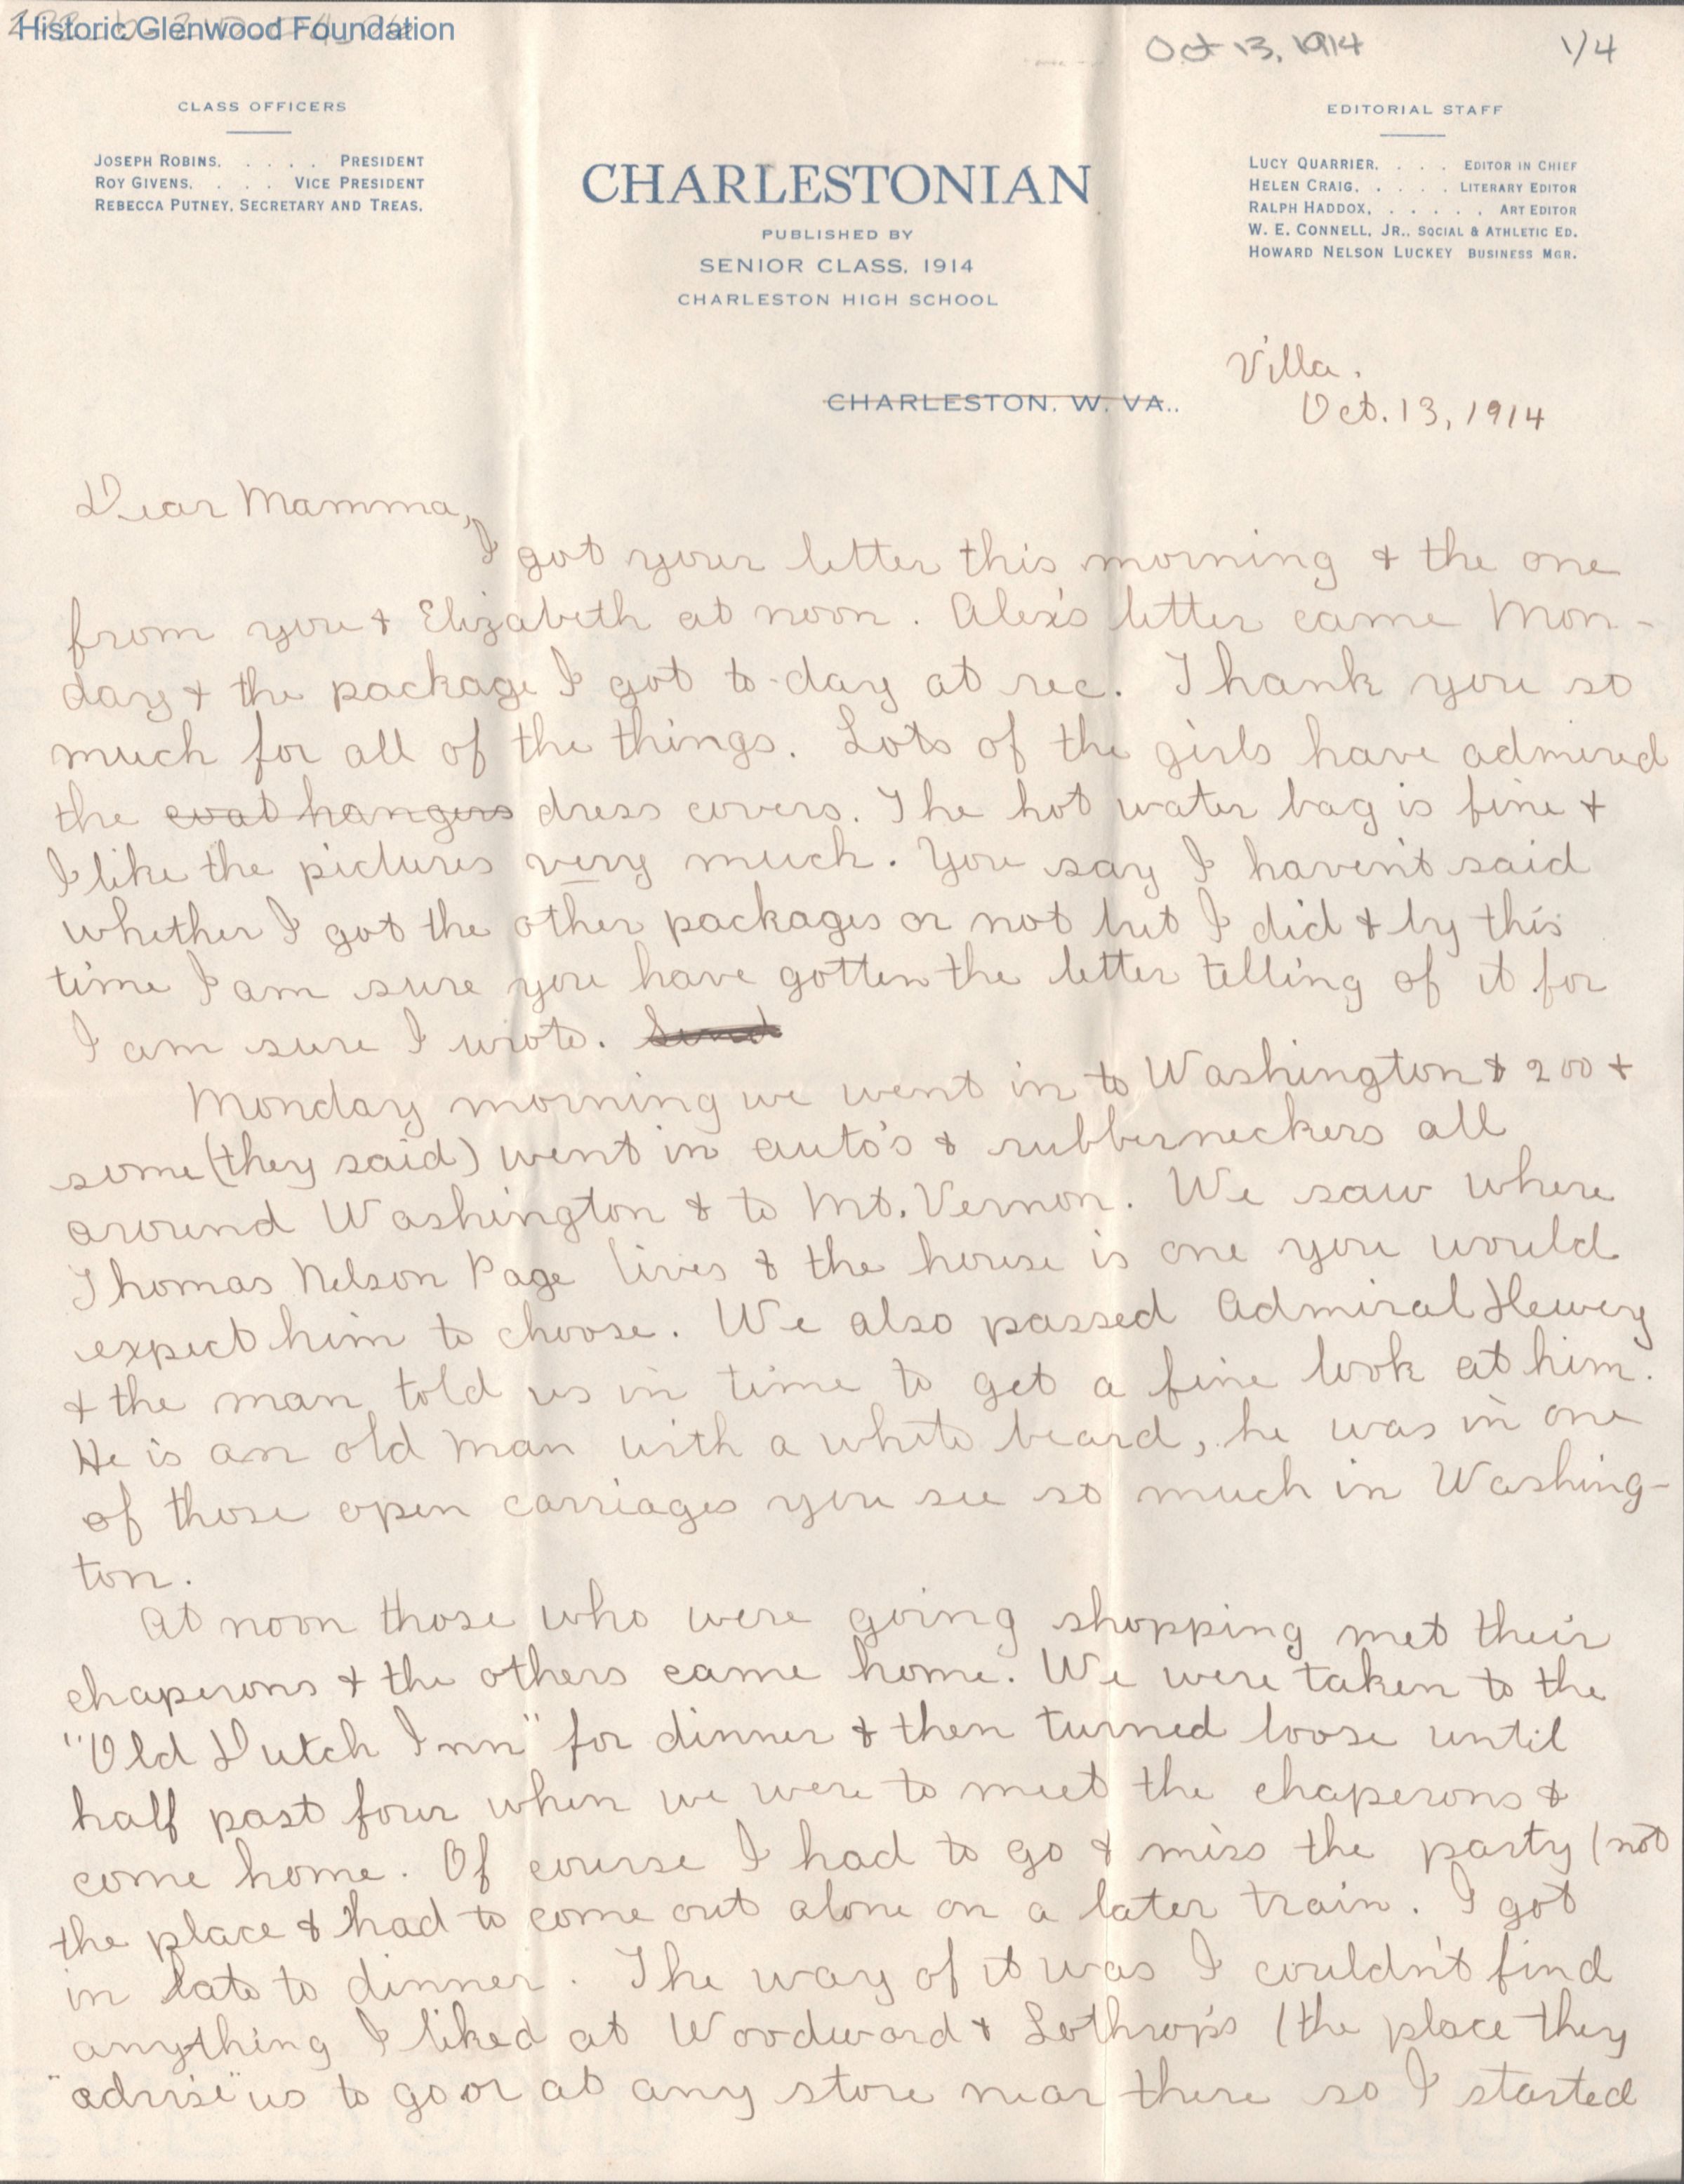 Historic Glenwood Foundation
Oct 13, 1914
1/4
CLASS OFFICERS
JOSEPH ROBINS. . . . . PRESIDENT
ROY GIVENS. . . . VICE PRESIDENT
REBECCA PUTNEY, SECRETARY AND TREAS.
CHARLESTONIAN
PUBLISHED BY
SENIOR CLASS, 1914
CHARLESTON HIGH SCHOOL
EDITORIAL STAFF
LUCY QUARRIER. . . . EDITOR IN CHIEF
HELEN CRAIG. . . . . LITERARY EDITOR
RALPH HADDOX, . . . . . ART EDITOR
W. E. CONNELL, JR.. SOCIAL & ATHLETIC ED.
HOWARD NELSON LUCKEY BUSINESS MGR.
CHARLESTON, W. VA..
Villa.
Oct. 13, 1914
Dear Mamma,
I got your letter this morning & the one
from you & Elizabeth at noon. Alex's letter came Mon-
day & the package I got to-day at rec. Thank you so
much for all of the things. Lots of the girls have admired
the coat hangers dress covers. The hot water bag is fine &
I like the pictures very much. You say I haven't said
whether I got the other packages or not but I did & by this
time I am sure you have gotten the letter telling of it for
I am sure I wrote. Send
Monday morning we went in to Washington & 200 &
some (they said) went in auto's & rubberneckers all
around Washington & to Mt. Vernon. We saw where
Thomas Nelson Page lives & the house is one you would
expect him to choose. We also passed Admiral Dewey
& the man told us in time to get a fine look at him.
He is an old man with a white beard, he was in one
of those open carriages you see so much in Washing-
ton.
At noon those who were going shopping met their
chaperons & the others came home. We were taken to the
"Old Dutch Inn" for dinner & then turned loose until
half past four when we were to meet the chaperons &
come home. Of course I had to go & miss the party (not
the place & had to come out alone on a later train. I got
in late to dinner. The way of it was I couldn't find
anything I liked at Woodward & Lothrop's (the place they
"advise" us to go or at any store near there so I started